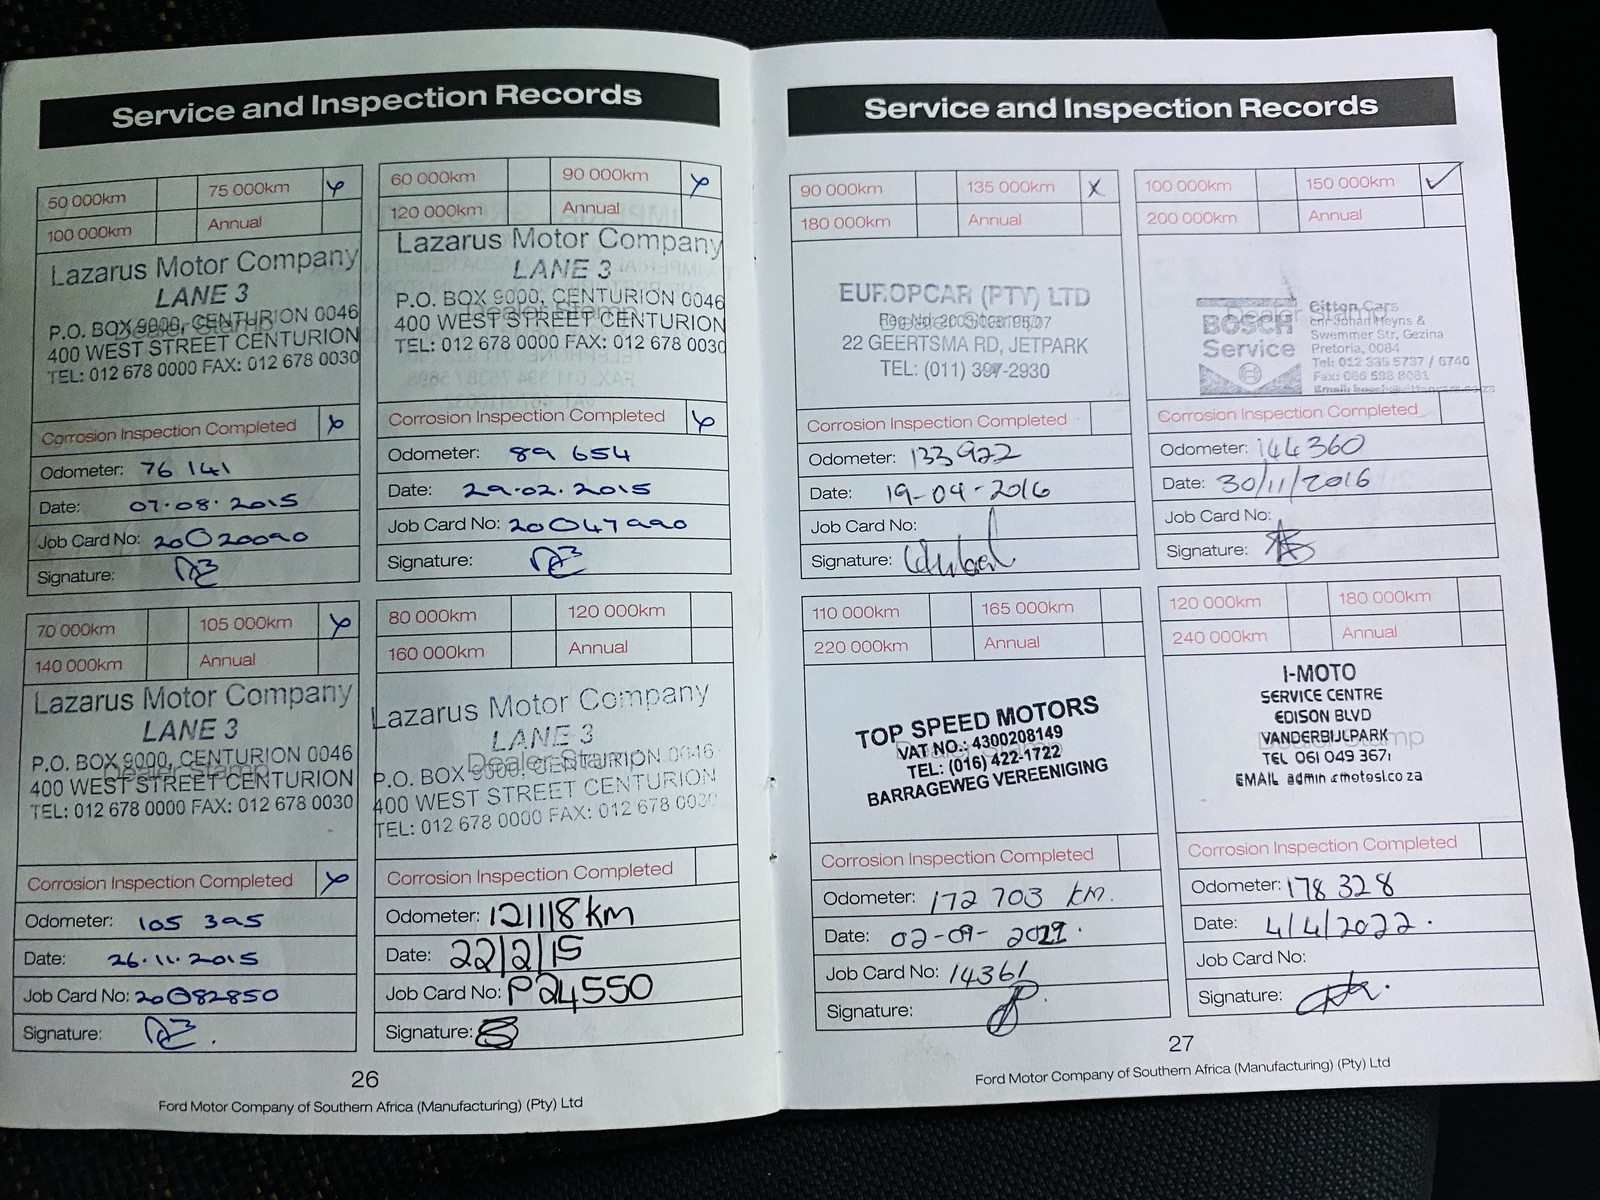 Service and Inspection Records
50 000km 75 000km
100 000km Annual
Lazarus Motor Company
LANE 3
P.O. BOX 9000, CENTURION 0046
Dealer Stamp
400 WEST STREET CENTURION
TEL: 012 678 0000 FAX: 012 678 0030
Corrosion Inspection Completed
Odometer: 76 141
Date: 07.08.2015
Job Card No: 20020090
Signature:
60 000km 90 000km
120 000km Annual
Lazarus Motor Company
LANE 3
P.O. BOX 9000, CENTURION 0046
Dealer Stamp
400 WEST STREET CENTURION
TEL: 012 678 0000 FAX: 012 678 0030
Corrosion Inspection Completed
Odometer: 89 654
Date: 29.02.2015
Job Card No: 20047990
Signature:
70 000km 105 000km
140 000km Annual
Lazarus Motor Company
LANE 3
P.O. BOX 9000, CENTURION 0046
Dealer Stamp
400 WEST STREET CENTURION
TEL: 012 678 0000 FAX: 012 678 0030
Corrosion Inspection Completed
Odometer: 105 395
Date: 26.11.2015
Job Card No: 20082850
Signature:
80 000km 120 000km
160 000km Annual
Lazarus Motor Company
LANE 3
Dealer Stamp
P.O. BOX 9000, CENTURION 0046
400 WEST STREET CENTURION
TEL: 012 678 0000 FAX: 012 678 0030
Corrosion Inspection Completed
Odometer: 121118km
Date: 22/2/15
Job Card No: P24550
Signature:
26
Ford Motor Company of Southern Africa (Manufacturing) (Pty) Ltd
Service and Inspection Records
90 000km 135 000km X
180 000km Annual
EUROPCAR (PTY) LTD
Dealer Stamp
Reg No:
22 GEERTSMA RD, JETPARK
TEL: (011) 397-2930
Corrosion Inspection Completed
Odometer: 133922
Date: 19-04-2016
Job Card No:
Signature:
100 000km 150 000km ✓
200 000km Annual
Dealer Stamp
BOSCH
Service
Citton Cars
cnr Johan Heyns &
Swemmer Str, Gezina
Pretoria, 0084
Tel: 012 335 5737 / 6740
Fax: 086 598 8081
Corrosion Inspection Completed
Odometer: 144360
Date: 30/11/2016
Job Card No:
Signature:
110 000km 165 000km
220 000km Annual
TOP SPEED MOTORS
VAT NO.: 4300208149
TEL: (016) 422-1722
BARRAGEWEG VEREENIGING
Corrosion Inspection Completed
Odometer: 172 703 km.
Date: 02-09-
Job Card No: 14361
Signature:
120 000km 180 000km
240 000km Annual
I-MOTO
SERVICE CENTRE
EDISON BLVD
VANDERBIJLPARK
Dealer Stamp
TEL 061 049 3671
EMAIL
Corrosion Inspection Completed
Odometer: 178 328
Date: 4/4/2022.
Job Card No:
Signature:
27
Ford Motor Company of Southern Africa (Manufacturing) (Pty) Ltd